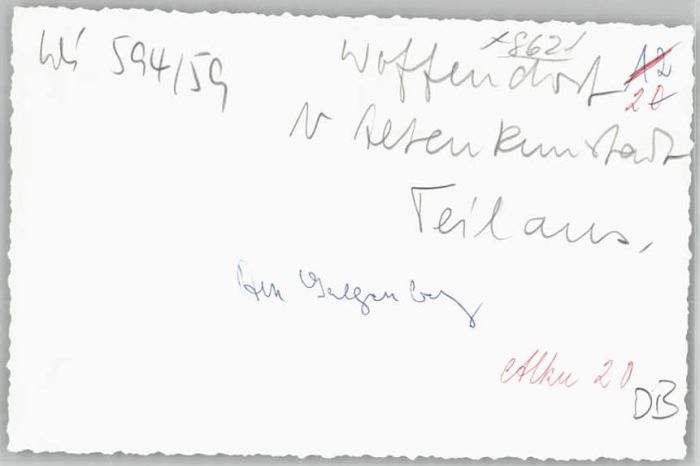 x8621
Wü 594/59 Woffendorf 12
20
b Altenkunstadt
Teilans.
Am Galgenberg
Alku 20
DB